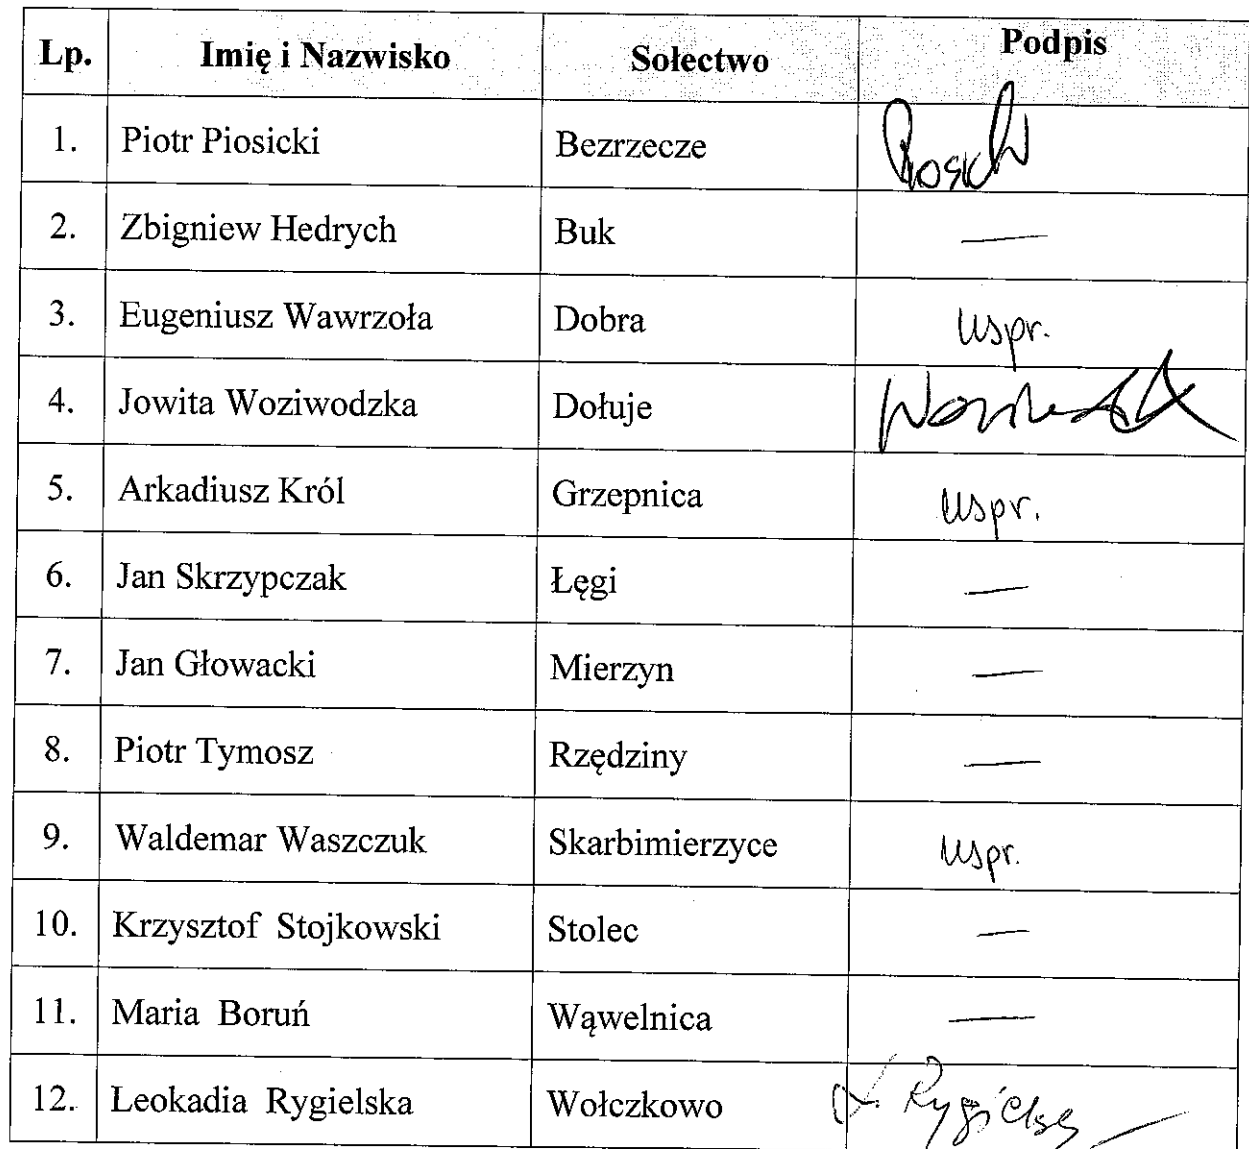 Lp. Imię i Nazwisko Sołectwo Podpis
1. Piotr Piosicki Bezrzecze
2. Zbigniew Hedrych Buk —
3. Eugeniusz Wawrzoła Dobra uspr.
4. Jowita Woziwodzka Dołuje
5. Arkadiusz Król Grzepnica uspr.
6. Jan Skrzypczak Łęgi —
7. Jan Głowacki Mierzyn —
8. Piotr Tymosz Rzędziny —
9. Waldemar Waszczuk Skarbimierzyce uspr.
10. Krzysztof Stojkowski Stolec —
11. Maria Boruń Wąwelnica —
12. Leokadia Rygielska Wołczkowo